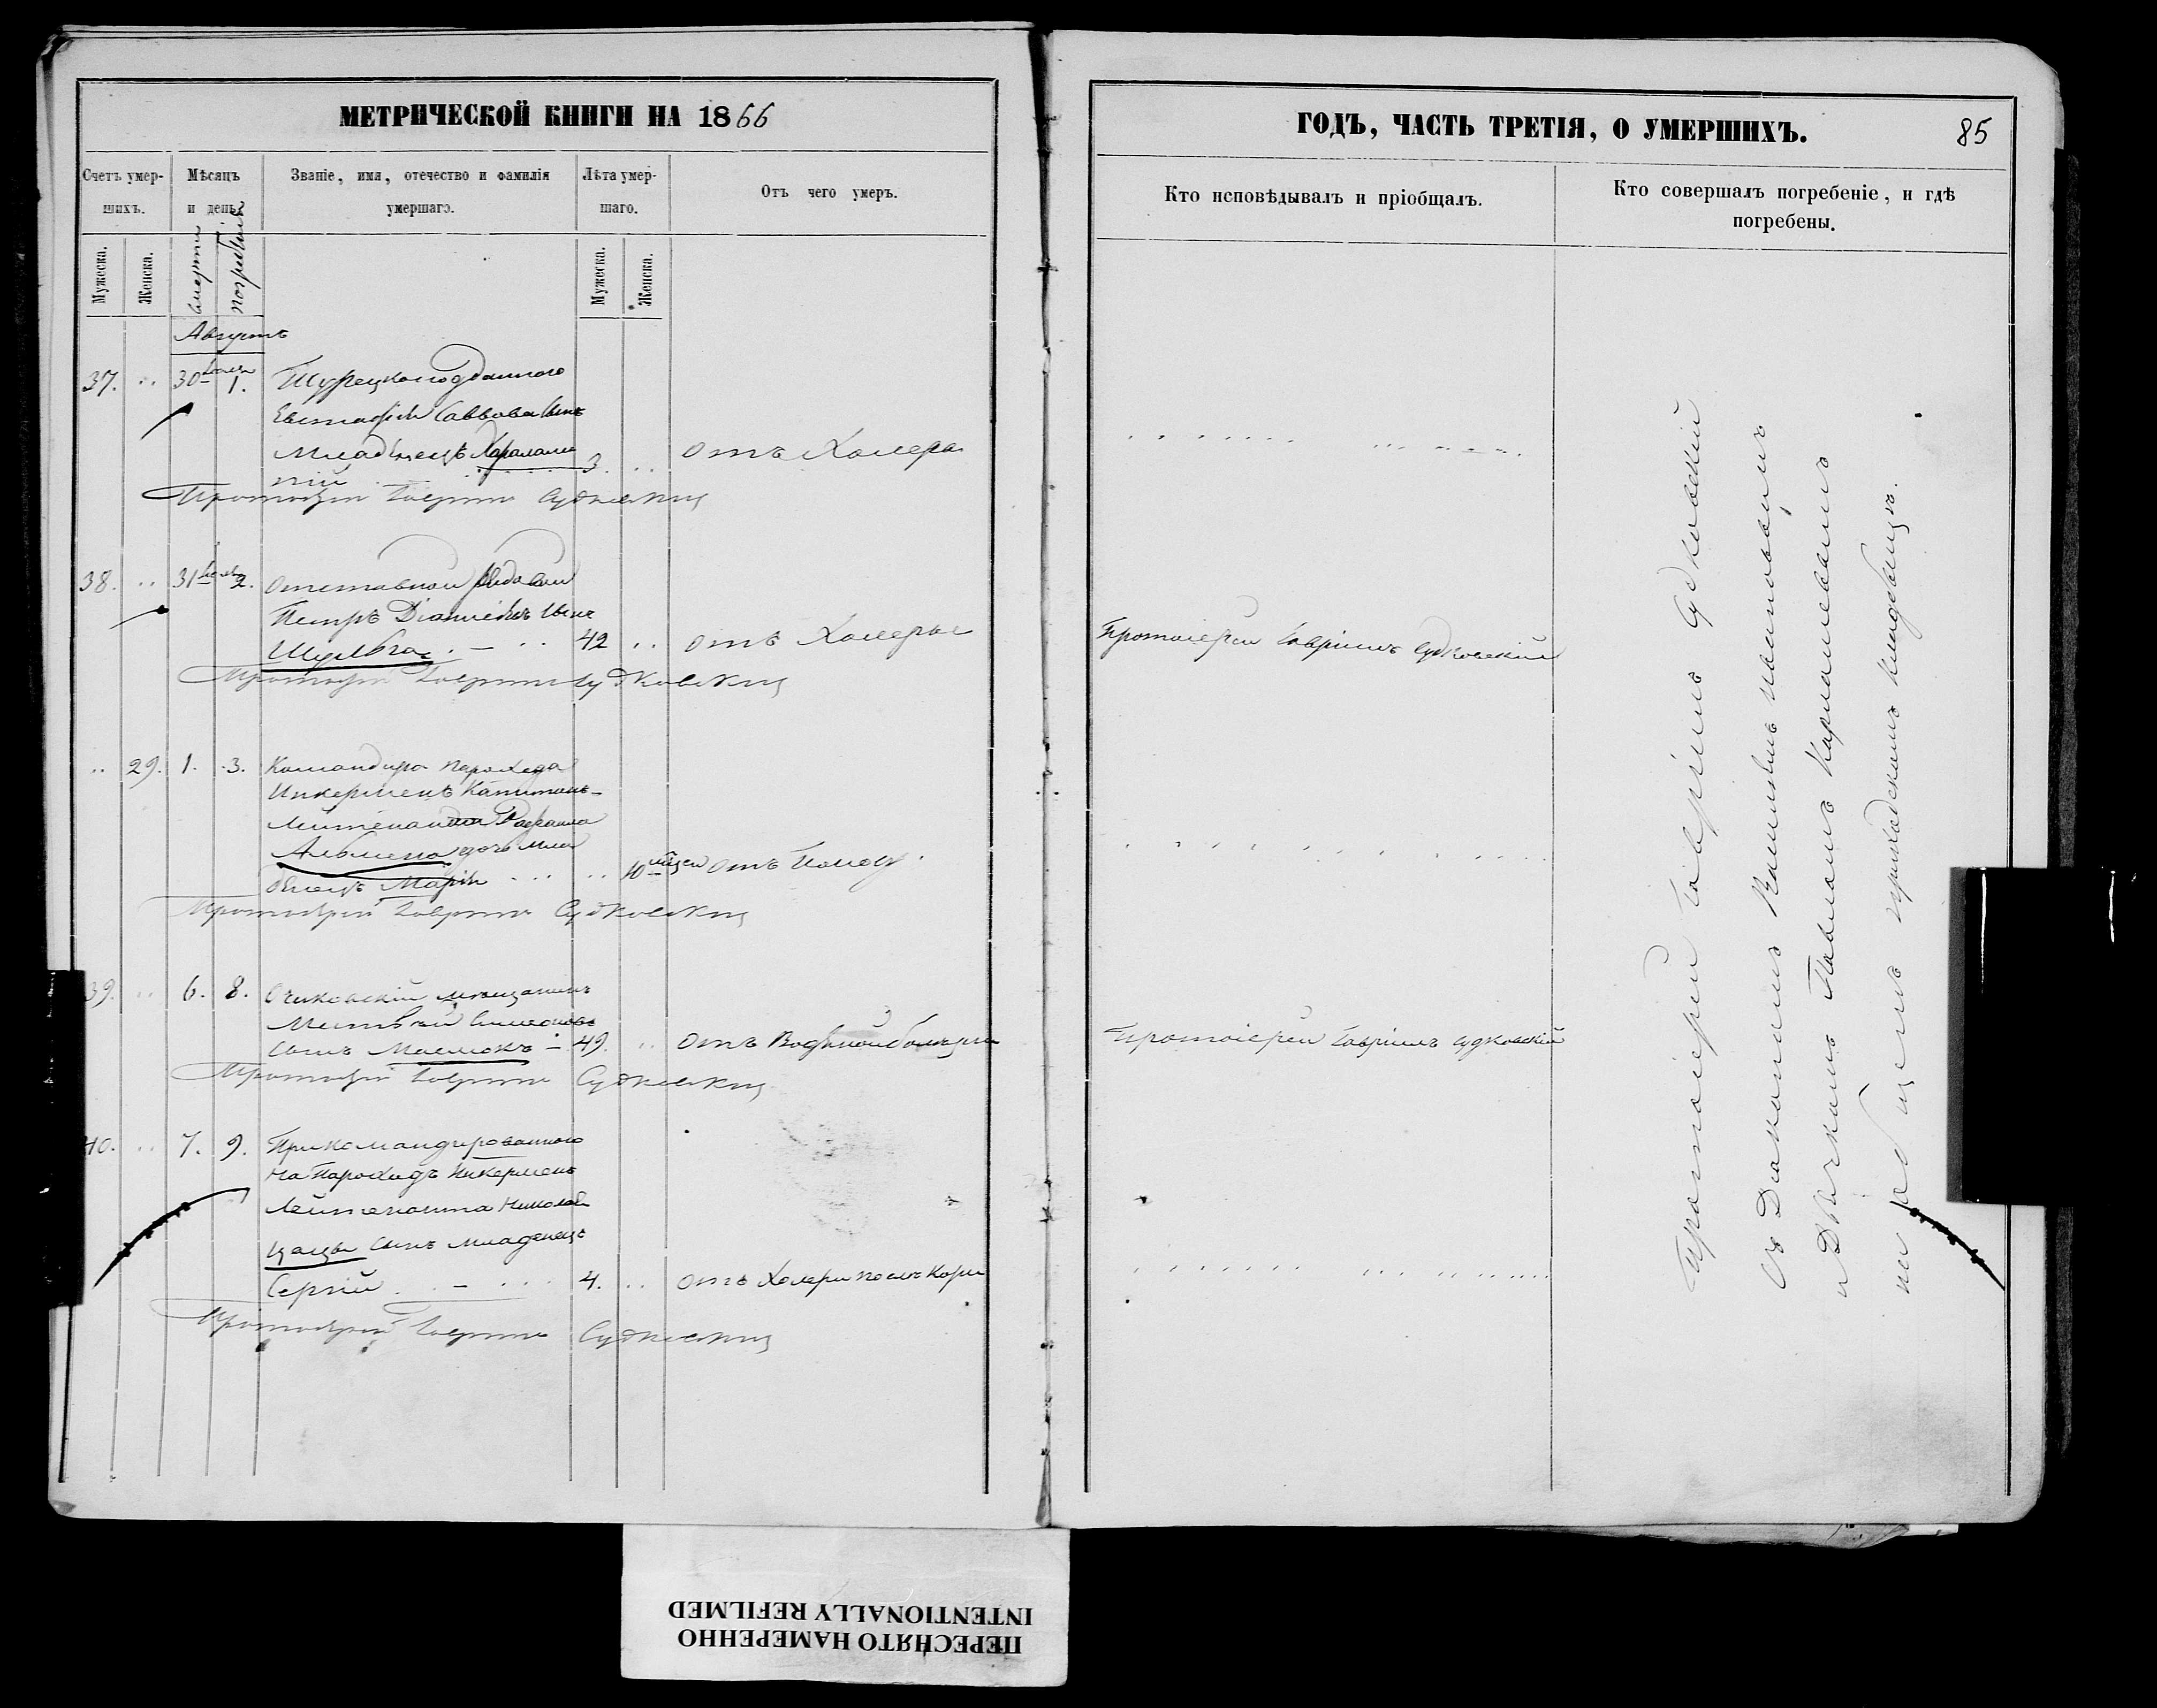 МЕТРИЧЕСКОЙ КНИГИ НА 1866
Счетъ умер-
шихъ.
Мѣсяцъ
и день
Званіе, имя, отечество и фамилія
умершаго.
Лѣта умер-
шаго.
Отъ чего умеръ.
Мужеска.
Женска.
смерти
погребенія
Мужеска.
Женска.
Августъ
37. 30 Іюля 1. Турецкоподданного
Евстафія Саввова сынъ
Младенецъ Харалам
пій 3. отъ Холеры
Протоіерей Гавріилъ Судковскій
38. 31 Іюля 2. Отставной рядовой
Петръ сынъ
Шульга 42 отъ Холеры
Протоіерей Гавріилъ Судковскій
29. 1. 3. Командира парохода
Инкерманъ Капитанъ-
Лейтенанта
дочь Мла
денецъ Марія 10 отъ
Протоіерей Гавріилъ Судковскій
39. 6. 8. Очаковскій мѣщанинъ
сынъ 49. отъ Водяной болѣзни
Протоіерей Гавріилъ Судковскій
40. 7. 9. Прикомандированного
на Пароходъ Инкерманъ
Лейтенанта Николая
сынъ Младенецъ
Сергій 4. отъ Холеры послѣ Кори
Протоіерей Гавріилъ Судковскій
ГОДЪ, ЧАСТЬ ТРЕТІЯ, О УМЕРШИХЪ.
85
Кто исповѣдывалъ и пріобщалъ.
Кто совершалъ погребеніе, и гдѣ
погребены.
Протоіерей Гавріилъ Судковскій
Протоіерей Гавріилъ Судковскій
Протоіерей Гавріилъ Судковскій
съ Діакономъ
и Дьячкомъ Павломъ
на общемъ приходскомъ кладбищѣ.
ПЕРЕСНЯТО НАМЕРЕННО
INTENTIONALLY REFILMED